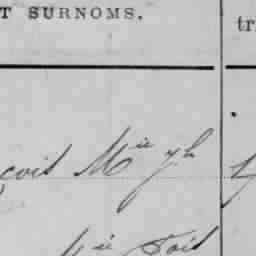 T SURNOMS.
tr
çois Mie Jh
Mie Fois